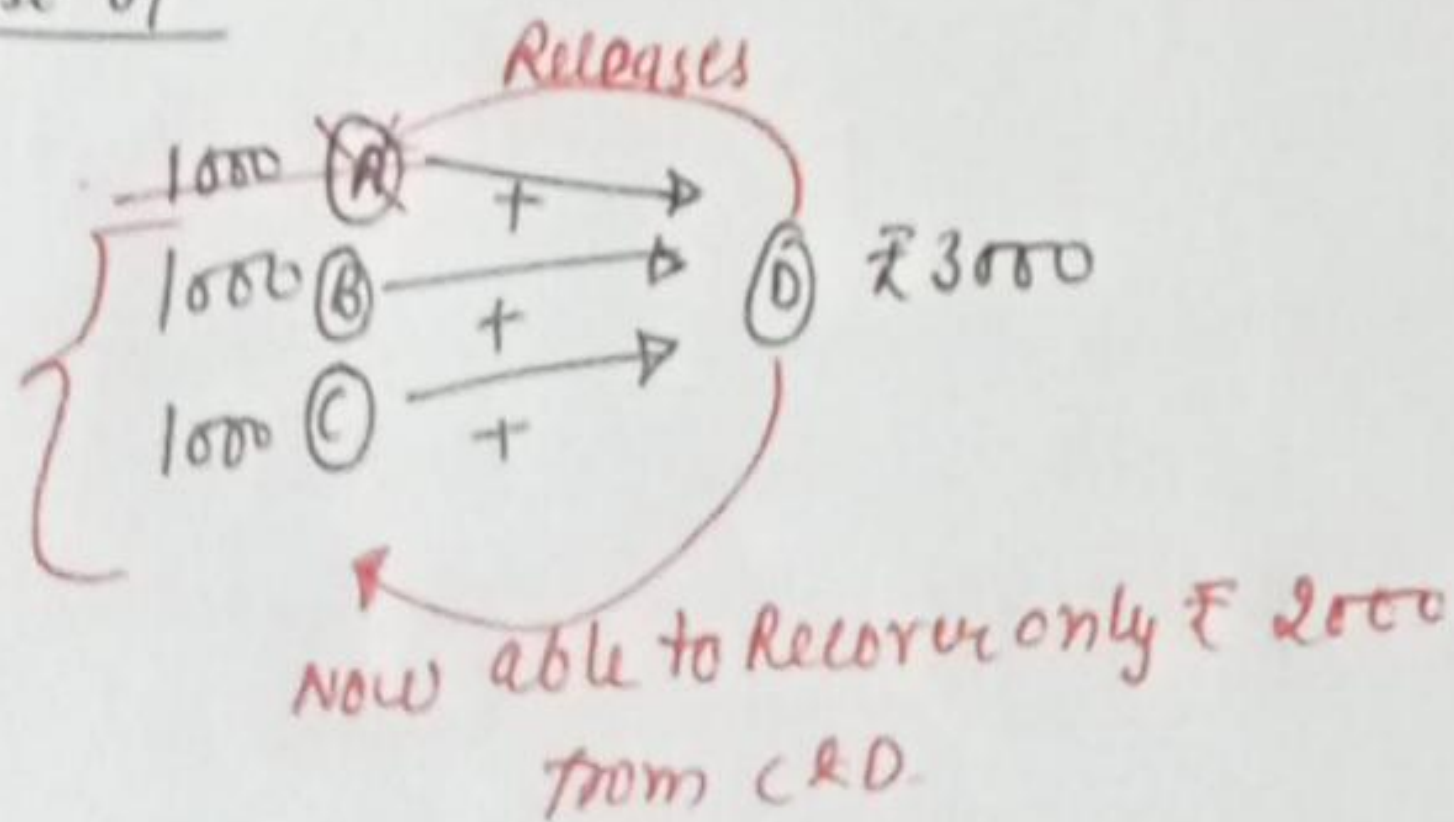 Releases
1000 A +
1000 B + D ₹ 3000
1000 C +
Now able to Recover only ₹ 2000
from C & D.